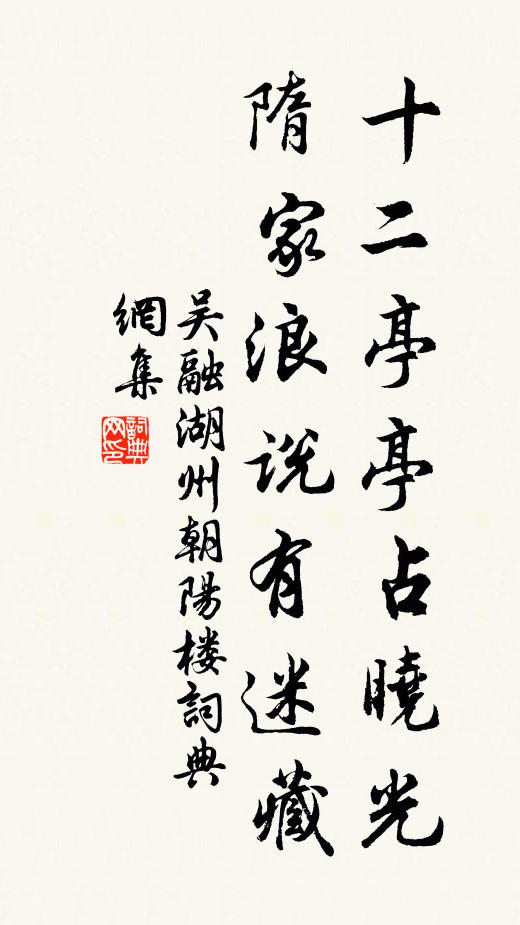 十二亭亭占曉光
隋家浪説有迷藏
吴融湖州朝陽楼詞典
網集
詞典
网印